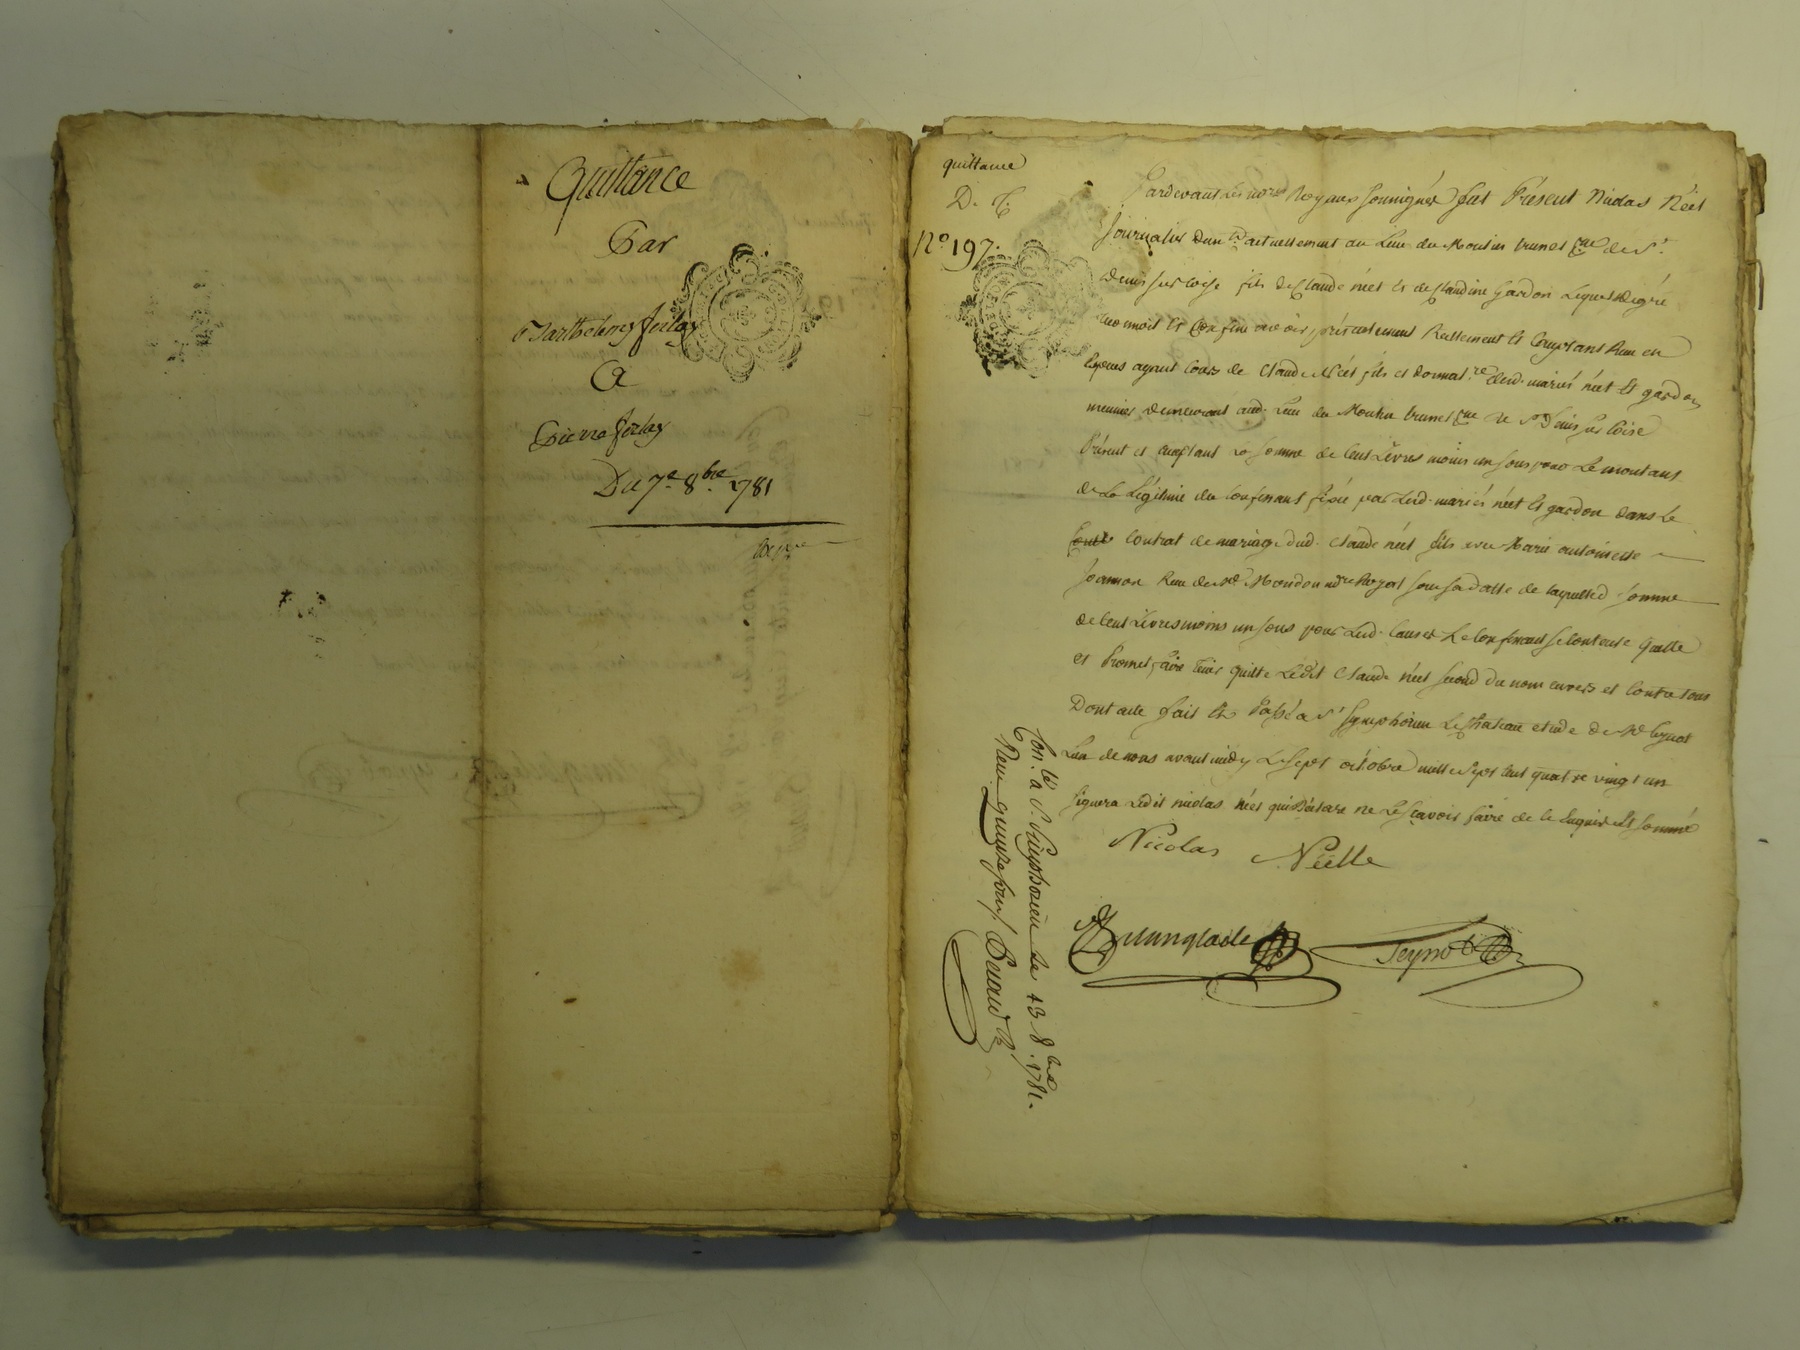 Quittance
Par
Barthelemy ferlay
A
Pierre ferlay
Du 7e 8bre 1781
quittance
D. T.
No. 197.
Pardevant les nores Royaux soussignés fut Présent Nicolas Néel
Journalier dem.t actuellement au lieu du Moulin brunet psse de St.
Denis sur Coise fils de Claude néel et de Claudine Gardon lequel de gré
confesse avoir présentement Reellement et Comptant Reçu en
Especes ayant Cours de Claude Néel fils et donnat.re desd. mariés néel et gardon
meunier demeurant aud. lieu du Moulin brunet psse de St Denis sur Coise
Présent et acceptant la somme de Cent Livres moins un sous pour le montant
de la Légitime du Confessant fixée par lesd. mariés néel et gardon dans le
Contrat de mariage dud. Claude néel fils avec Marie antoinette
Joannon Reçu de Me Mondon nore Royal sous sa datte de laquelle d. somme
de Cent Livres moins un sous pour lesd. Causes le Confessant se Contente quitte
et Promet faire tenir quitte Ledit Claude néel second du nom envers et Contre tous
Dont acte fait et Passé a St Symphorien le Château etude de Me
L'un de nous avant midy le sept octobre mille sept Cent quatre vingt un
signera Ledit nicolas néel
Nicolas Néelle
Con.lé a St. Simphorien le 13 8bre 1781.
Reçu quinze sous